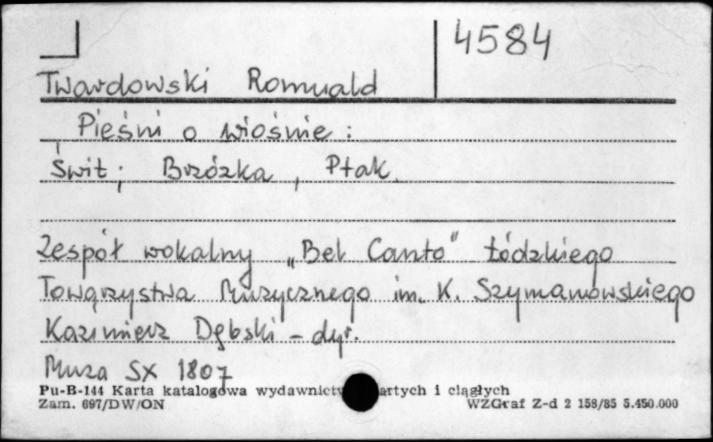 4584
Twardowski Romuald
Pieśni o wiośnie:
Świt; Brzózka, Ptak
Zespół wokalny „Bel Canto" Łódzkiego
Towarzystwa Muzycznego im. K. Szymanowskiego
Kazimierz Dębski - dyr.
Muza SX 1807
Pu-B-144 Karta katalogowa wydawnictw artych i ciągłych
Zam. 697/DW/ON WZGraf Z-d 2 158/85 5.450.000